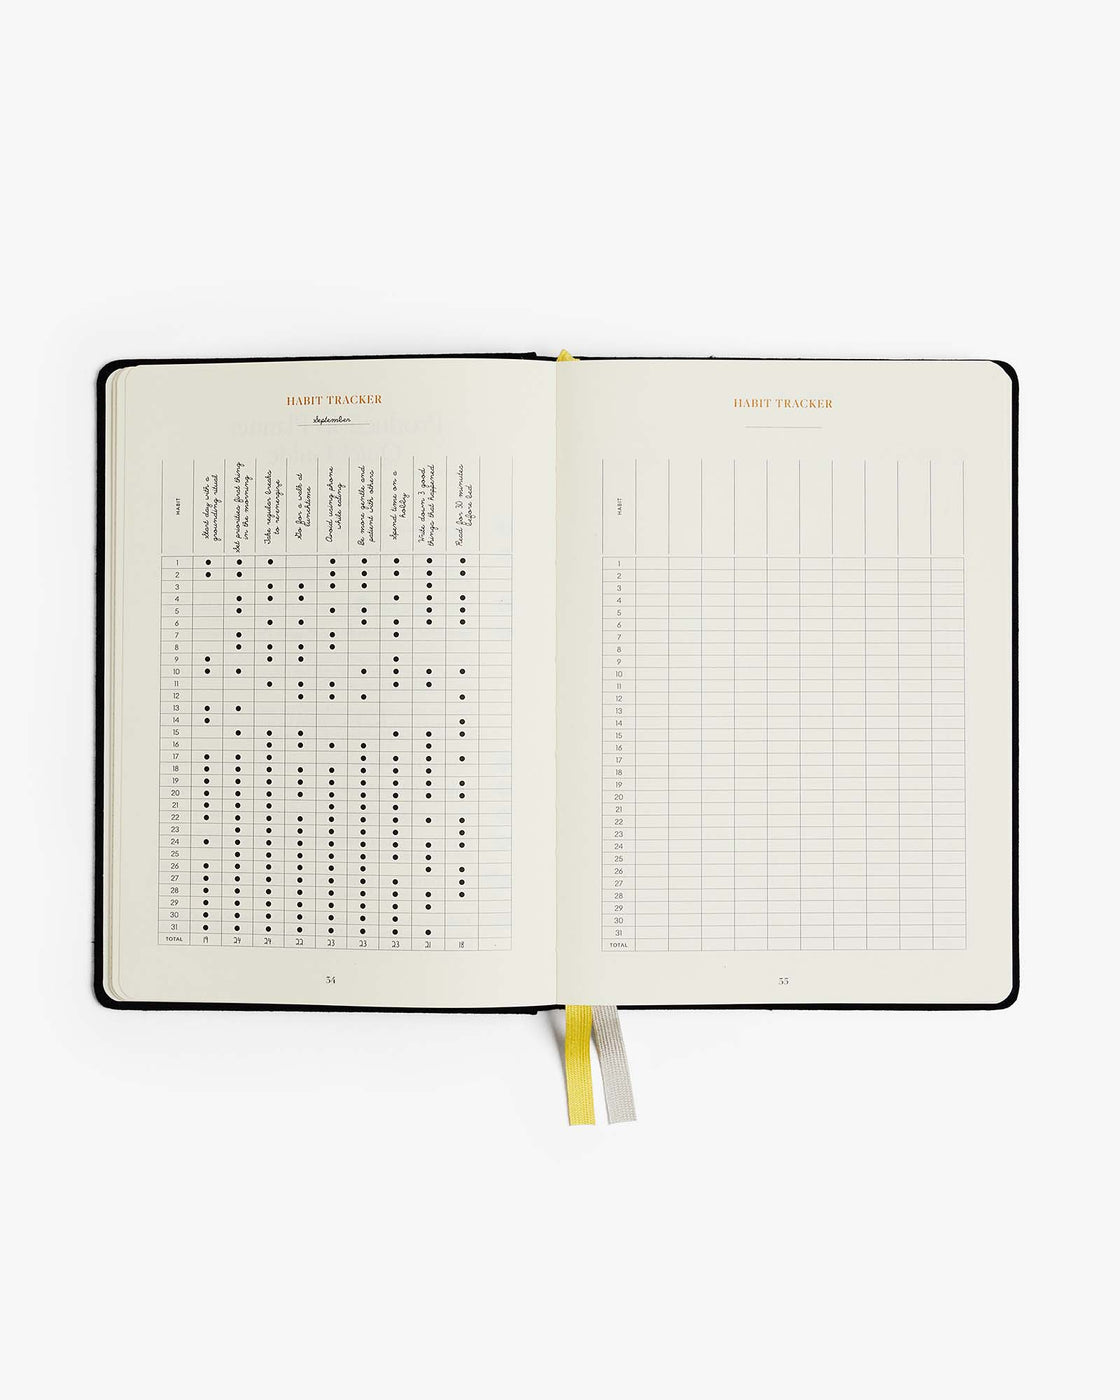 HABIT TRACKER
September
HABIT
Start day with a
grounding ritual
Set priorities first thing
in the morning
Take regular breaks
to reenergize
Go for a walk at
lunchtime
Avoid using phone
while eating
Be more gentle and
patient with others
Spend time on a
hobby
Write down 3 good
things that happened
Read for 30 minutes
before bed
1
2
3
4
5
6
7
8
9
10
11
12
13
14
15
16
17
18
19
20
21
22
23
24
25
26
27
28
29
30
31
TOTAL 19 24 24 22 23 23 23 21 18
34
HABIT TRACKER
HABIT
1
2
3
4
5
6
7
8
9
10
11
12
13
14
15
16
17
18
19
20
21
22
23
24
25
26
27
28
29
30
31
TOTAL
35